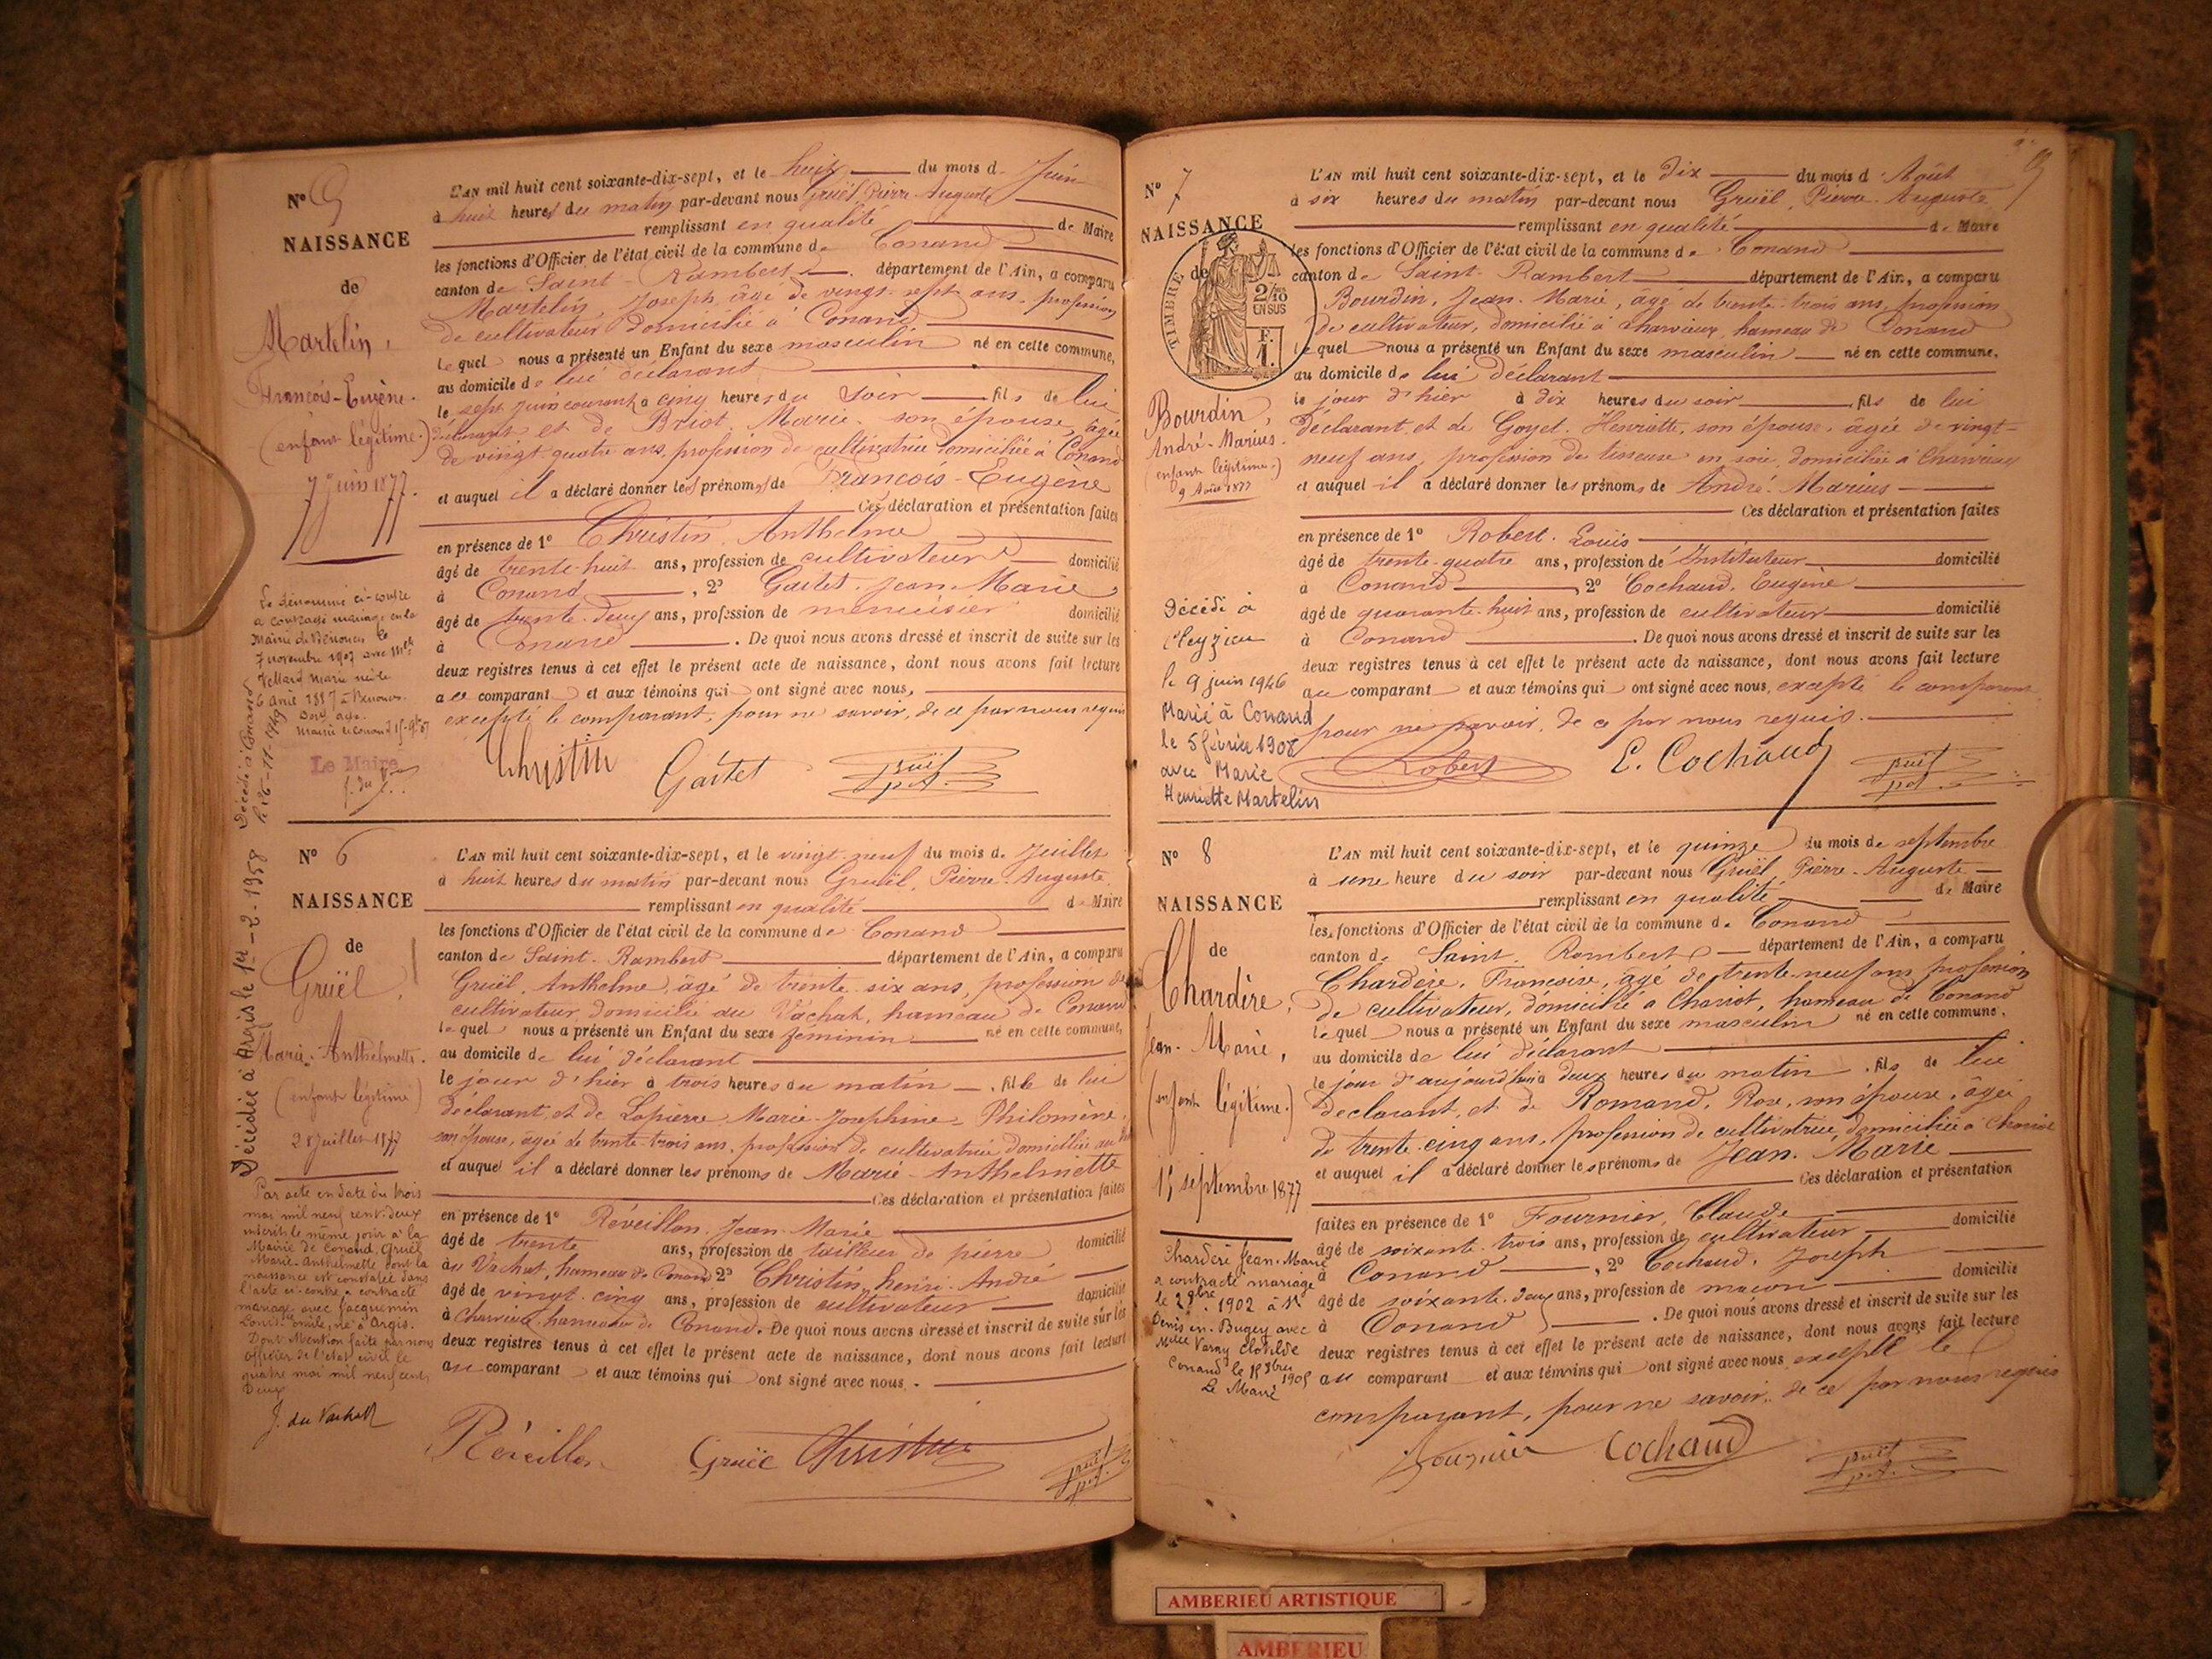 N° 5
NAISSANCE
de
Martelin,
François-Eugène.
(enfant légitime.)
7 Juin 1877.
Le dénommé ci-contre
a contracté mariage en la
Mairie de Bénonces le
7 novembre 1907 avec Mlle
Vellard Marie née le
6 avril 1887 à Bénonces.
Dont acte.
Mairie de Conand
Le Maire
Décédé à Conand
L'AN mil huit cent soixante-dix-sept, et le huit du mois de Juin
à huit heures du matin par-devant nous Gruël Pierre-Auguste
remplissant en qualité de Maire
les fonctions d'Officier de l'état civil de la commune de Conand
canton de Saint-Rambert département de l'Ain, a comparu
Martelin, Joseph, âgé de vingt-sept ans, profession
de cultivateur domicilié à Conand
lequel nous a présenté un Enfant du sexe masculin né en cette commune,
au domicile de lui déclarant
le sept juin courant à cinq heures du soir fils de lui
déclarant et de Briot, Marie, son épouse, âgée
de vingt-quatre ans, profession de cultivatrice domiciliée à Conand
et auquel il a déclaré donner les prénoms de François-Eugène
Ces déclaration et présentation faites
en présence de 1° Christin, Anthelme
âgé de trente-huit ans, profession de cultivateur domicilié
à Conand, 2° Gartet, Jean-Marie,
âgé de trente-deux ans, profession de menuisier domicilié
à Conand. De quoi nous avons dressé et inscrit de suite sur les
deux registres tenus à cet effet le présent acte de naissance, dont nous avons fait lecture
au comparant et aux témoins qui ont signé avec nous,
excepté le comparant, pour ne savoir, de ce par nous requis
Christin Gartet
N° 6
NAISSANCE
de
Gruël,
Marie-Anthelmette.
(enfant légitime)
28 Juillet 1877
Décédée à Argis le 1er-2-1958
Par acte en date du trois
mai mil neuf cent-deux
inscrit le même jour à la
Mairie de Conand, Gruël
Marie-Anthelmette dont la
naissance est constatée dans
l'acte ci-contre a contracté
mariage avec Jacquemin
Louis-Emile, né à Argis.
Dont Mention faite par nous
officier de l'état civil le
quatre mai mil neuf cent
Deux
J. du Vachat
L'AN mil huit cent soixante-dix-sept, et le vingt-neuf du mois de Juillet
à huit heures du matin par-devant nous Gruël, Pierre-Auguste
remplissant en qualité de Maire
les fonctions d'Officier de l'état civil de la commune de Conand
canton de Saint-Rambert département de l'Ain, a comparu
Gruël, Anthelme, âgé de trente-six ans, profession de
cultivateur domicilié au Vachat, hameau de Conand
lequel nous a présenté un Enfant du sexe féminin né en cette commune,
au domicile de lui déclarant
le jour d'hier à trois heures du matin, fille de lui
déclarant, et de Lapierre Marie-Joséphine-Philomène,
son épouse, âgée de trente-trois ans, profession de cultivatrice domiciliée au
et auquel il a déclaré donner les prénoms de Marie-Anthelmette
Ces déclaration et présentation faites
en présence de 1° Réveillon, Jean-Marie
âgé de trente ans, profession de tailleur de pierre domicilié
au Vachat, hameau de Conand 2° Christin, henri-André
âgé de vingt-cinq ans, profession de cultivateur domicilié
à Charvieux hameau de Conand. De quoi nous avons dressé et inscrit de suite sur les
deux registres tenus à cet effet le présent acte de naissance, dont nous avons fait lecture
au comparant et aux témoins qui ont signé avec nous.
Réveillon Gruël Christin
N° 7
NAISSANCE
de
TIMBRE
2/10
EN SUS
F.
1.
Bourdin,
André-Marius.
(enfant légitime.)
9 Août 1877
Décédé à
Cleyzieu
le 9 juin 1946
Marié à Conand
le 5 février 1908
avec Marie
Henriette Martelin
L'AN mil huit cent soixante-dix-sept, et le dix du mois d'Août
à six heures du matin par-devant nous Gruël, Pierre-Auguste
remplissant en qualité de Maire
les fonctions d'Officier de l'état civil de la commune de Conand
canton de Saint-Rambert département de l'Ain, a comparu
Bourdin, Jean-Marie, âgé de trente-trois ans, profession
de cultivateur, domicilié à Charvieux, hameau de Conand
lequel nous a présenté un Enfant du sexe masculin né en cette commune,
au domicile de lui déclarant
le jour d'hier à dix heures du soir, fils de lui
déclarant, et de Goyet, Henriette, son épouse, âgée de vingt-
neuf ans, profession de tisseuse en soie, domiciliée à Charvieux
et auquel il a déclaré donner les prénoms de André-Marius
Ces déclaration et présentation faites
en présence de 1° Robert, Louis
âgé de trente-quatre ans, profession d'Instituteur domicilié
à Conand, 2° Cochaud, Eugène
âgé de quarante-huit ans, profession de cultivateur domicilié
à Conand. De quoi nous avons dressé et inscrit de suite sur les
deux registres tenus à cet effet le présent acte de naissance, dont nous avons fait lecture
au comparant et aux témoins qui ont signé avec nous, excepté le comparant
pour ne savoir, de ce par nous requis.
Robert E. Cochaud
N° 8
NAISSANCE
de
Chardère,
Jean-Marie,
(enfant légitime.)
15 septembre 1877
Chardère Jean-Marie
a contracté mariage
le 28 9bre 1902 à St
Denis-en-Bugey avec
Melle Verny Clotilde
Conand le 15 Xbre 1905
Le Maire
L'AN mil huit cent soixante-dix-sept, et le quinze du mois de septembre
à une heure du soir par-devant nous Gruël, Pierre-Auguste
remplissant en qualité de Maire
les fonctions d'Officier de l'état civil de la commune de Conand
canton de Saint-Rambert département de l'Ain, a comparu
Chardère, Francoise, âgé de trente-neuf ans profession
de cultivateur, domicilié à Charriot, hameau de Conand
lequel nous a présenté un Enfant du sexe masculin né en cette commune,
au domicile de lui déclarant
le jour d'aujourd'hui à deux heures du matin, fils de lui
déclarant, et de Romand, Rose, son épouse, âgée
de trente-cinq ans, profession de cultivatrice, domiciliée à Charriot
et auquel il a déclaré donner les prénoms de Jean-Marie
Ces déclaration et présentation
faites en présence de 1° Fournier, Claude
âgé de soixante-trois ans, profession de cultivateur domicilié
à Conand, 2° Cochaud, Joseph
âgé de soixante-deux ans, profession de maçon domicilié
à Conand. De quoi nous avons dressé et inscrit de suite sur les
deux registres tenus à cet effet le présent acte de naissance, dont nous avons fait lecture
au comparant et aux témoins qui ont signé avec nous excepté le
comparant, pour ne savoir, de ce par nous requis
Fournier Cochaud
AMBERIEU ARTISTIQUE
AMBERIEU